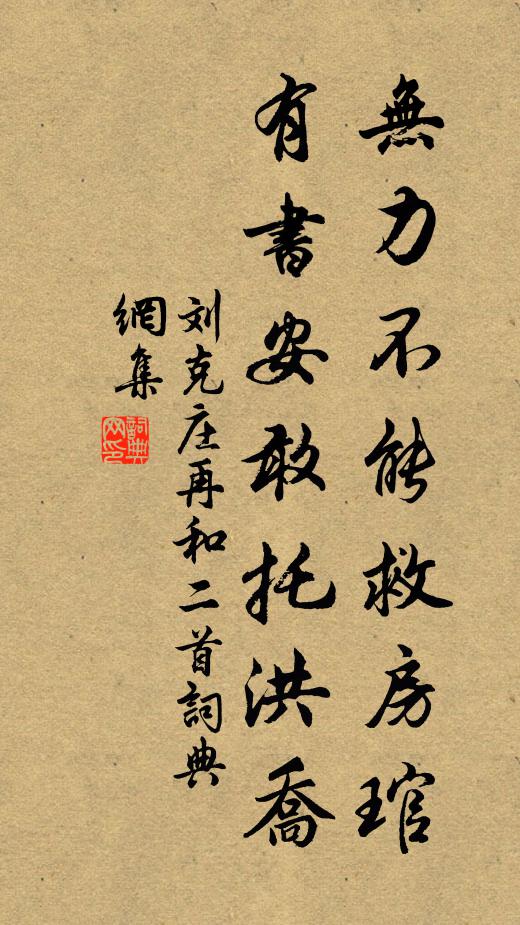 無力不能救房琯
有書安敢托洪喬
刘克庄再和二首詞典
網集
詞典
网印